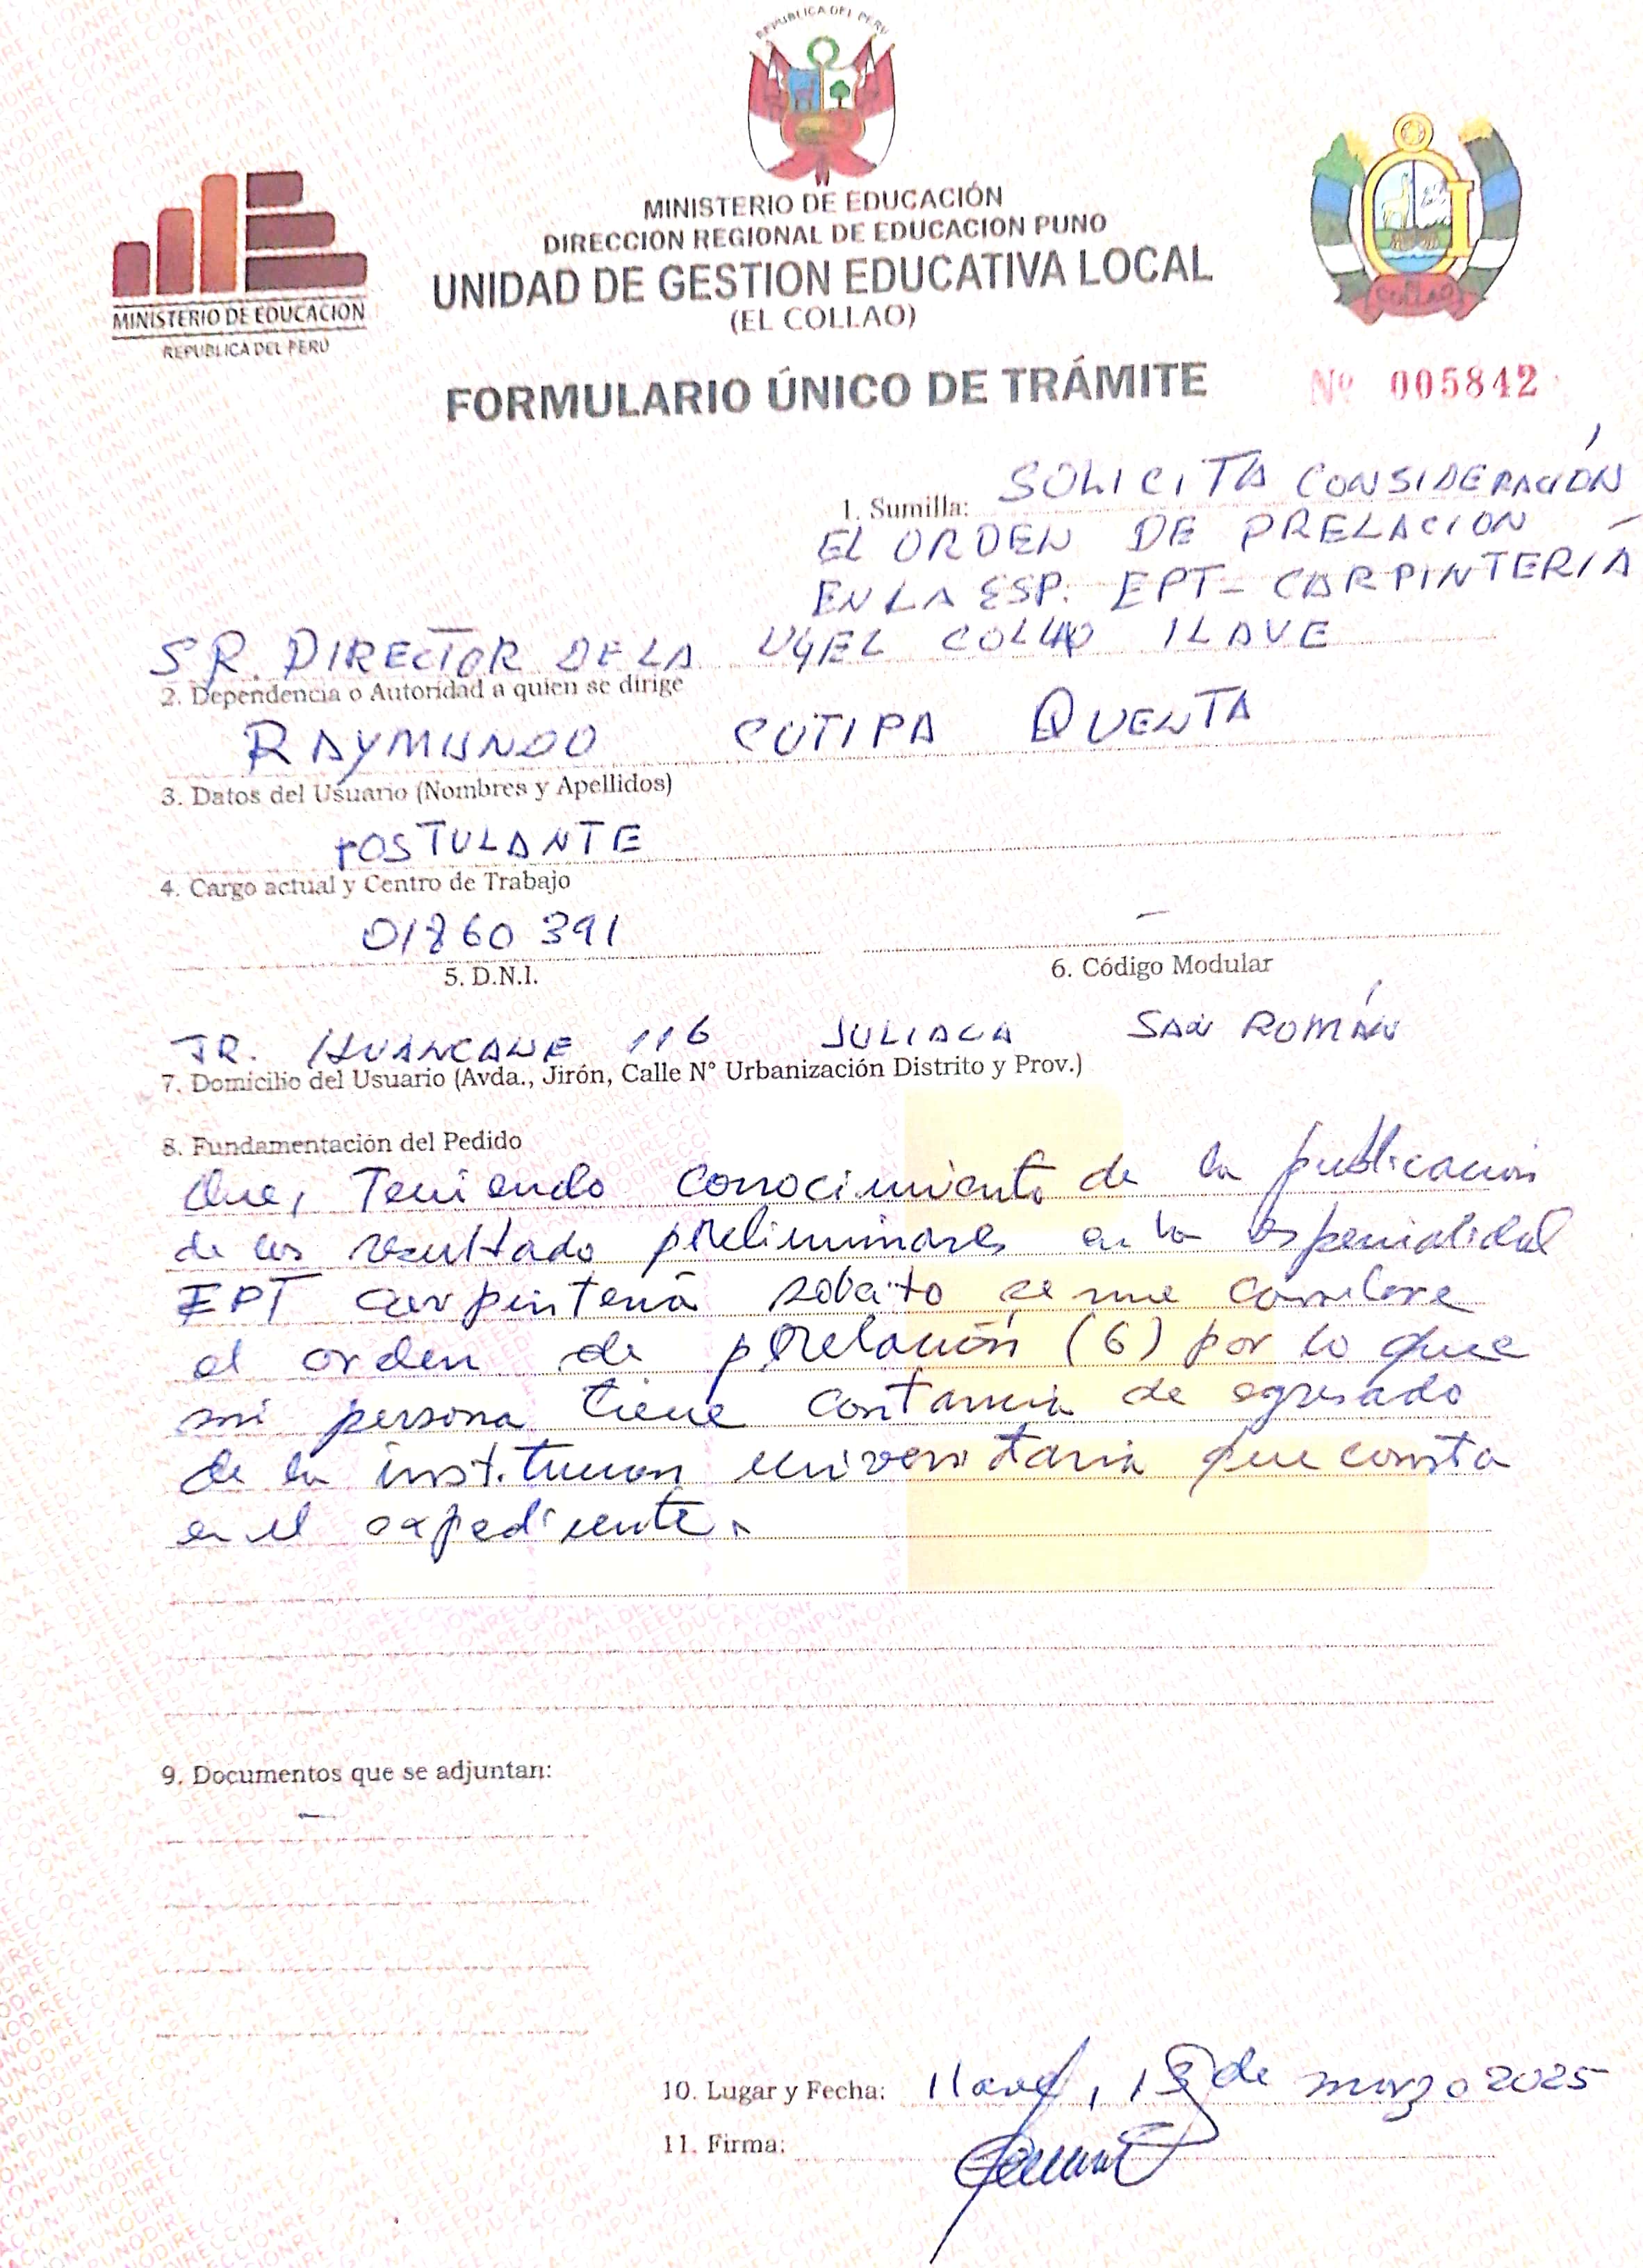 REPUBLICA DEL PERU
MINISTERIO DE EDUCACIÓN
DIRECCION REGIONAL DE EDUCACION PUNO
UNIDAD DE GESTION EDUCATIVA LOCAL
(EL COLLAO)
MINISTERIO DE EDUCACION
REPUBLICA DEL PERÚ
COLLAO
FORMULARIO ÚNICO DE TRÁMITE
Nº 005842
1. Sumilla: SOLICITA CONSIDERACIÓN
EL ORDEN DE PRELACION
EN LA ESP. EPT - CARPINTERIA
SR. DIRECTOR DE LA UGEL COLLAO ILAVE
2. Dependencia o Autoridad a quien se dirige
RAYMUNDO CUTIPA QUENTA
3. Datos del Usuario (Nombres y Apellidos)
POSTULANTE
4. Cargo actual y Centro de Trabajo
01860391 —
5. D.N.I. 6. Código Modular
JR. HUANCANE 116 JULIACA SAN ROMÁN
7. Domicilio del Usuario (Avda., Jirón, Calle N° Urbanización Distrito y Prov.)
8. Fundamentación del Pedido
Que, Teniendo conocimiento de la publicacion
de los resultado preliminares en la especialidad
EPT carpinteria solicito se me considere
el orden de prelación (6) por lo que
mi persona tiene constancia de egresado
de la institucion universitaria que consta
en el expediente.
9. Documentos que se adjuntan:
—
10. Lugar y Fecha: Ilave, 13 de marzo 2025
11. Firma: